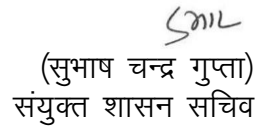 (सुभाष चन्द्र गुप्ता)
संयुक्त शासन सचिव